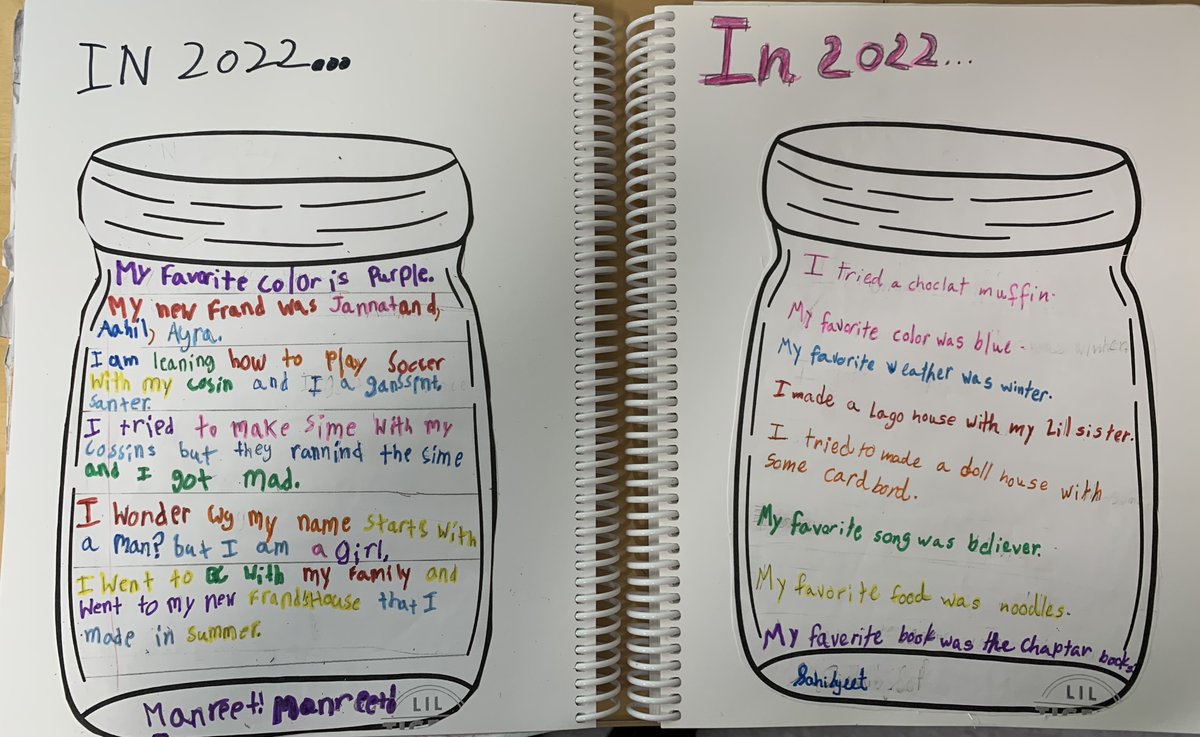 IN 2022...
My Favorite color is Purple.
My new Frand was Jannatand,
Aahil, Ayra.
I am leaning how to Play Soccer
With my cosin and I a ganssint
santer.
I tried to make Sime With my
Cossins but they rannind the sime
and I got mad.
I Wonder wy my name starts with
a Man? but I am a girl,
I Went to BC With my Family and
Went to my new Frandshouse that I
made in summer.
Manreet! Manreet!
LIL
In 2022...
I tried a choclat muffin.
My favorite color was blue.
My favorite weather was winter.
I made a Lago house with my Lil sister.
I tried to made a doll house with
some cardbord.
My favorite song was believer.
My favorite food was noodles.
My faverite book was the Chaptar books.
LIL